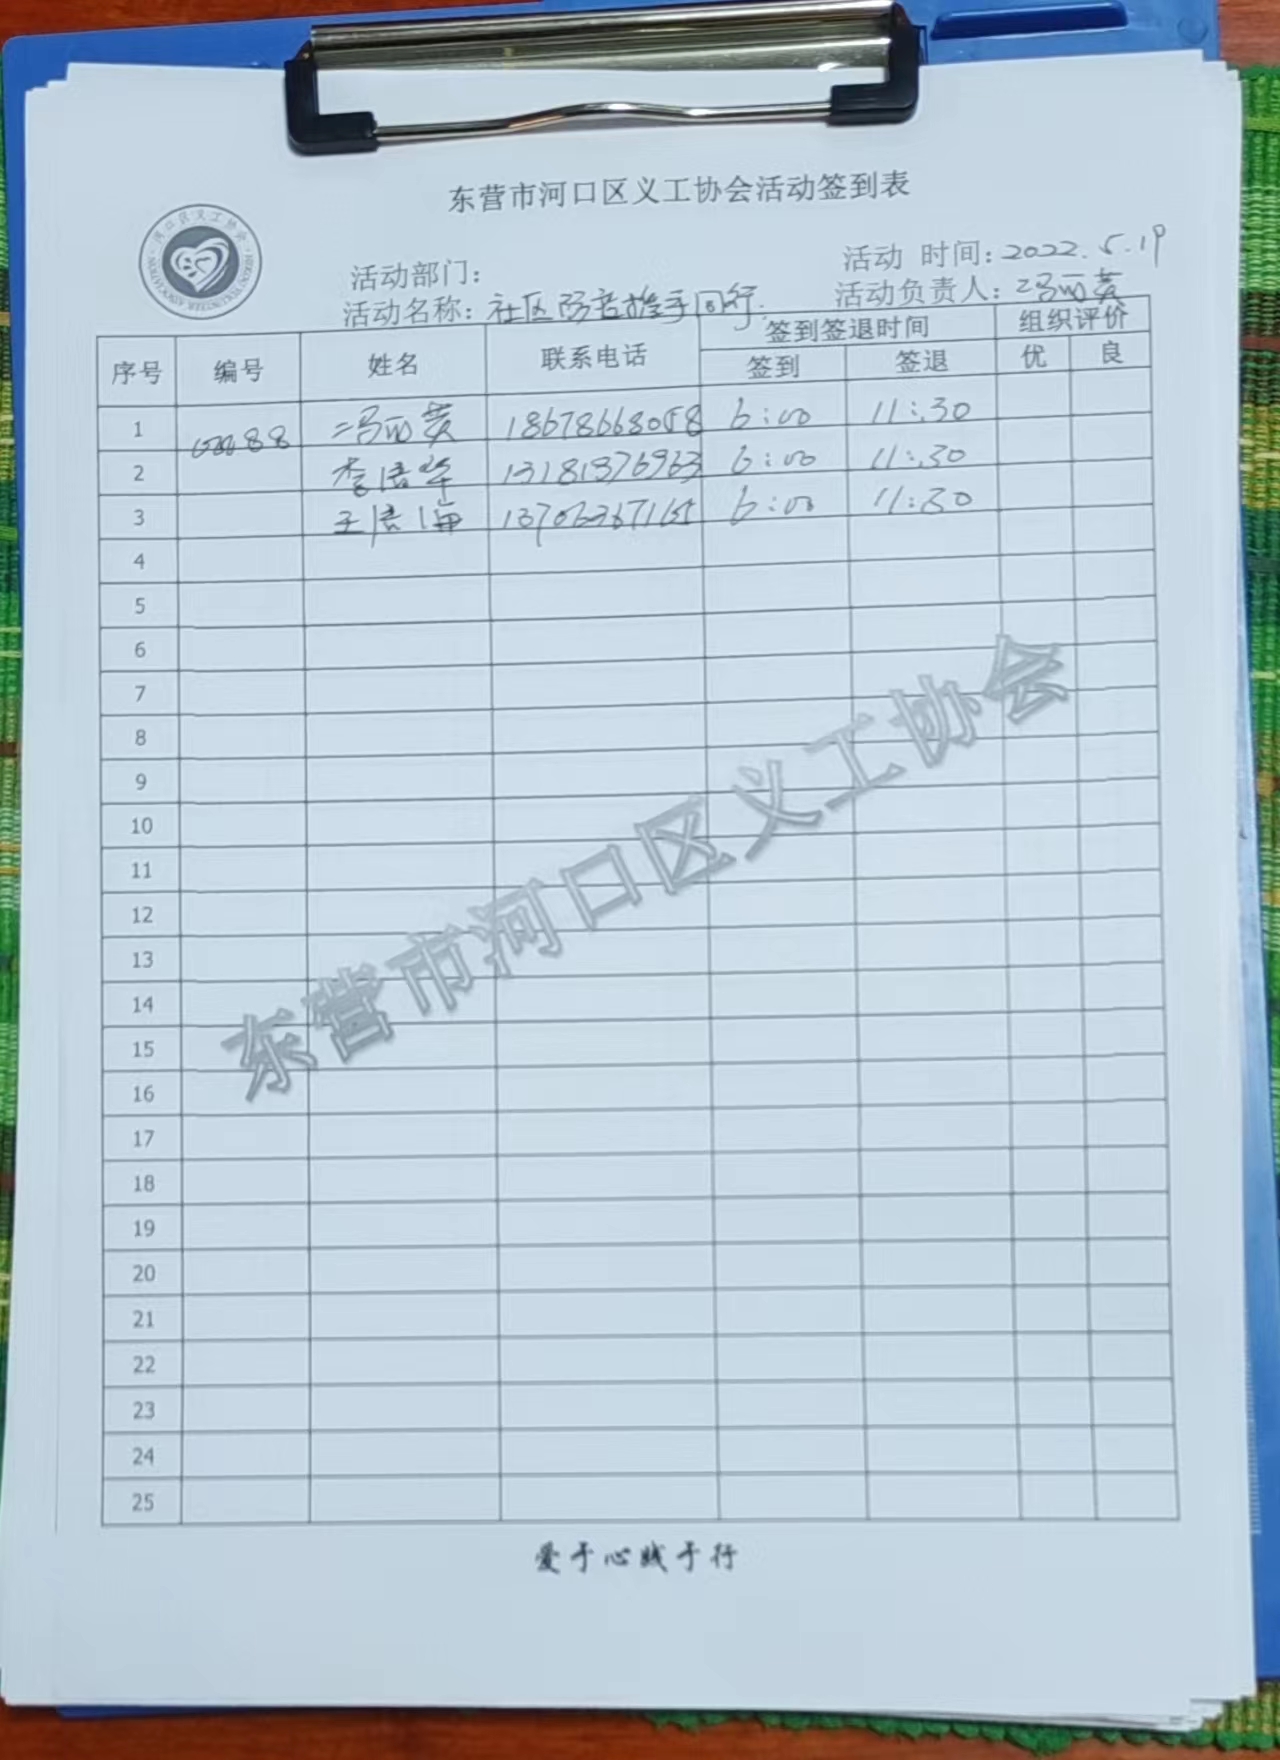 东营市河口区义工协会活动签到表
河口区义工协会
HEKOU VOLUNTEER ASSOCIATION
活动部门： 活动 时间：2022.5.19
活动名称：社区防控携手同行. 活动负责人：冯丽英
序号 编号 姓名 联系电话 签到签退时间 组织评价
签到 签退 优 良
1 88 冯丽英 18678668058 6:00 11:30
2 李 13181376963 6:00 11:30
3 王 海 6:00 11:30
4
5
6
7
8
9
10
11
12
13
14
15
16
17
18
19
20
21
22
23
24
25
东营市河口区义工协会
爱于心践于行